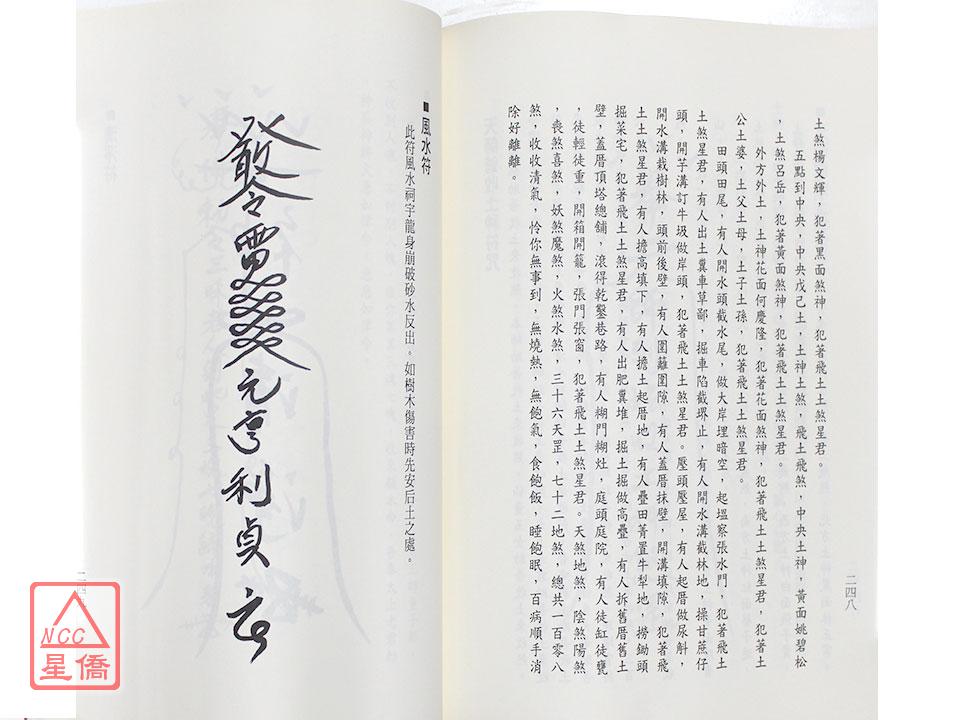 土煞楊文輝，犯著黑面煞神，犯著飛土土煞星君。
五點到中央，中央戊己土，土神土煞，飛土飛煞，中央土神，黃面姚碧松
，土煞呂岳，犯著黃面煞神，犯著飛土土煞星君。
外方外土，土神花面何慶隆，犯著花面煞神，犯著飛土土煞星君，犯著土
公土婆，土父土母，土子土孫，犯著飛土土煞星君。
田頭田尾，有人開水頭截水尾，做大岸埋暗空，起塭察張水門，犯著飛土
土煞星君，有人出土糞車草鄙，掘車陷截堺止，有人開水溝截林地，操甘蔗仔
頭，開芋溝訂牛圾做岸頭，犯著飛土土煞星君。壓頭壓屋，有人起厝做尿斛，
開水溝栽樹林，頭前後壁，有人圍籬圍隙，有人蓋厝抹壁，開溝填隙，犯著飛
土土煞星君，有人擔高填下，有人擔土起厝地，有人疊田菁置牛犁地，撈鋤頭
掘菜宅，犯著飛土土煞星君，有人出肥糞堆，掘土掘做高疊，有人拆舊厝舊土
壁，蓋厝頂塔總舖，滾得乾鑿巷路，有人糊門糊灶，庭頭庭院，有人徒缸徒甕
，徒輕徒重，開箱開籠，張門張窗，犯著飛土土煞星君。天煞地煞，陰煞陽煞
，喪煞喜煞，妖煞魔煞，火煞水煞，三十六天罡，七十二地煞，總共一百零八
煞，收收清氣，怜你無事到，無燒熱，無飽氣，食飽飯，睡飽眠，百病順手消
除好離離。
二四八
■風水符
此符風水祠宇龍身崩破砂水反出。如樹木傷害時先安后土之處。
元亨利貞
二四
NCC
星僑